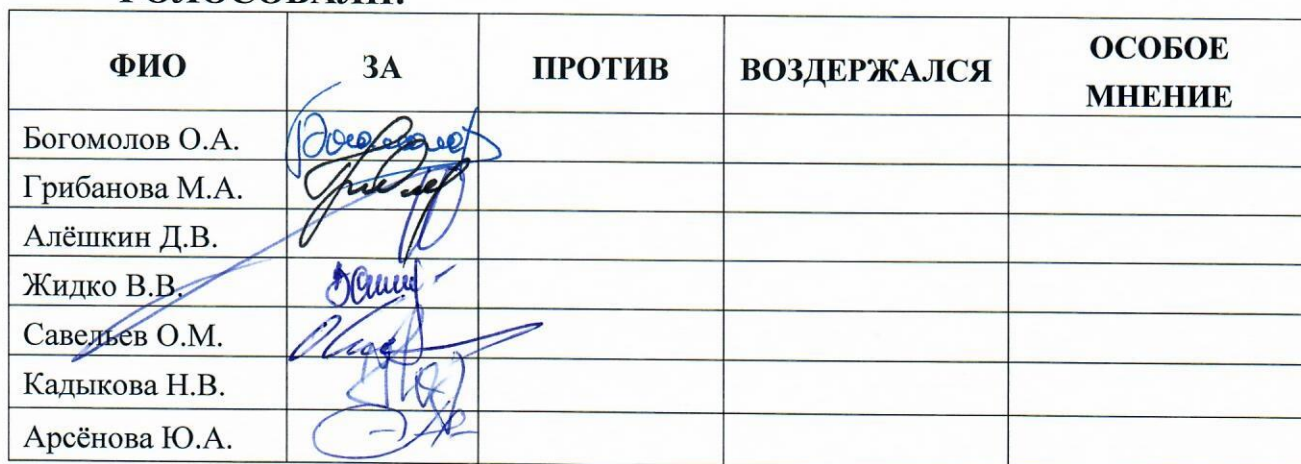 ГОЛОСОВАЛИ:
ФИО ЗА ПРОТИВ ВОЗДЕРЖАЛСЯ ОСОБОЕ МНЕНИЕ
Богомолов О.А.
Грибанова М.А.
Алёшкин Д.В.
Жидко В.В.
Савельев О.М.
Кадыкова Н.В.
Арсёнова Ю.А.